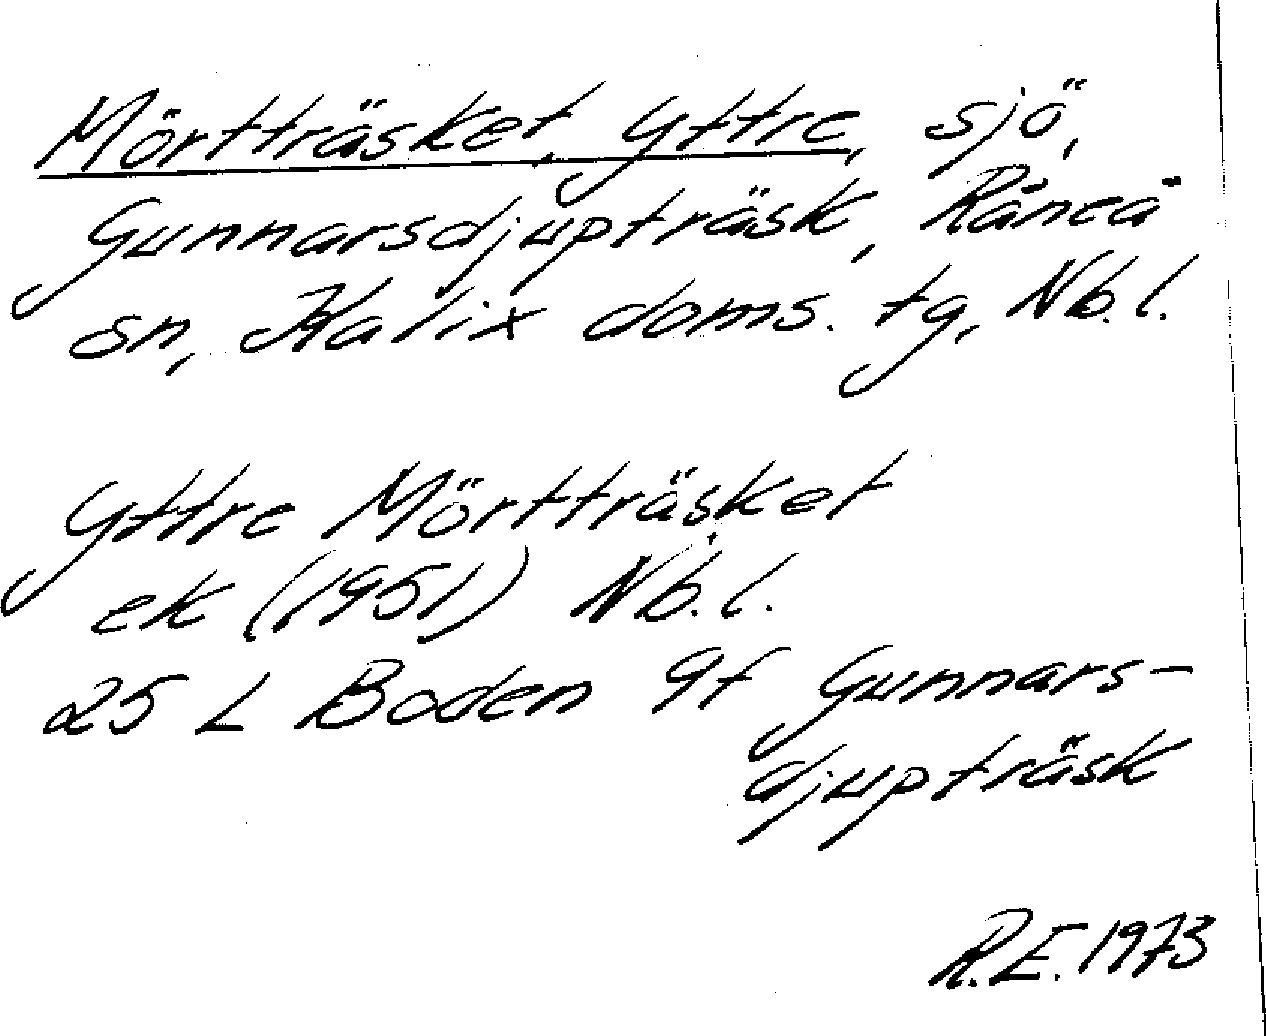 Mörtträsket, Yttre, sjö,
Gunnarsdjupträsk, Råneå
sn, Kalix doms. tg, Nb.l.
Yttre Mörtträsket
ek (1951) Nb.l.
25 L Boden 9f Gunnars-
djupträsk
R.E. 1973